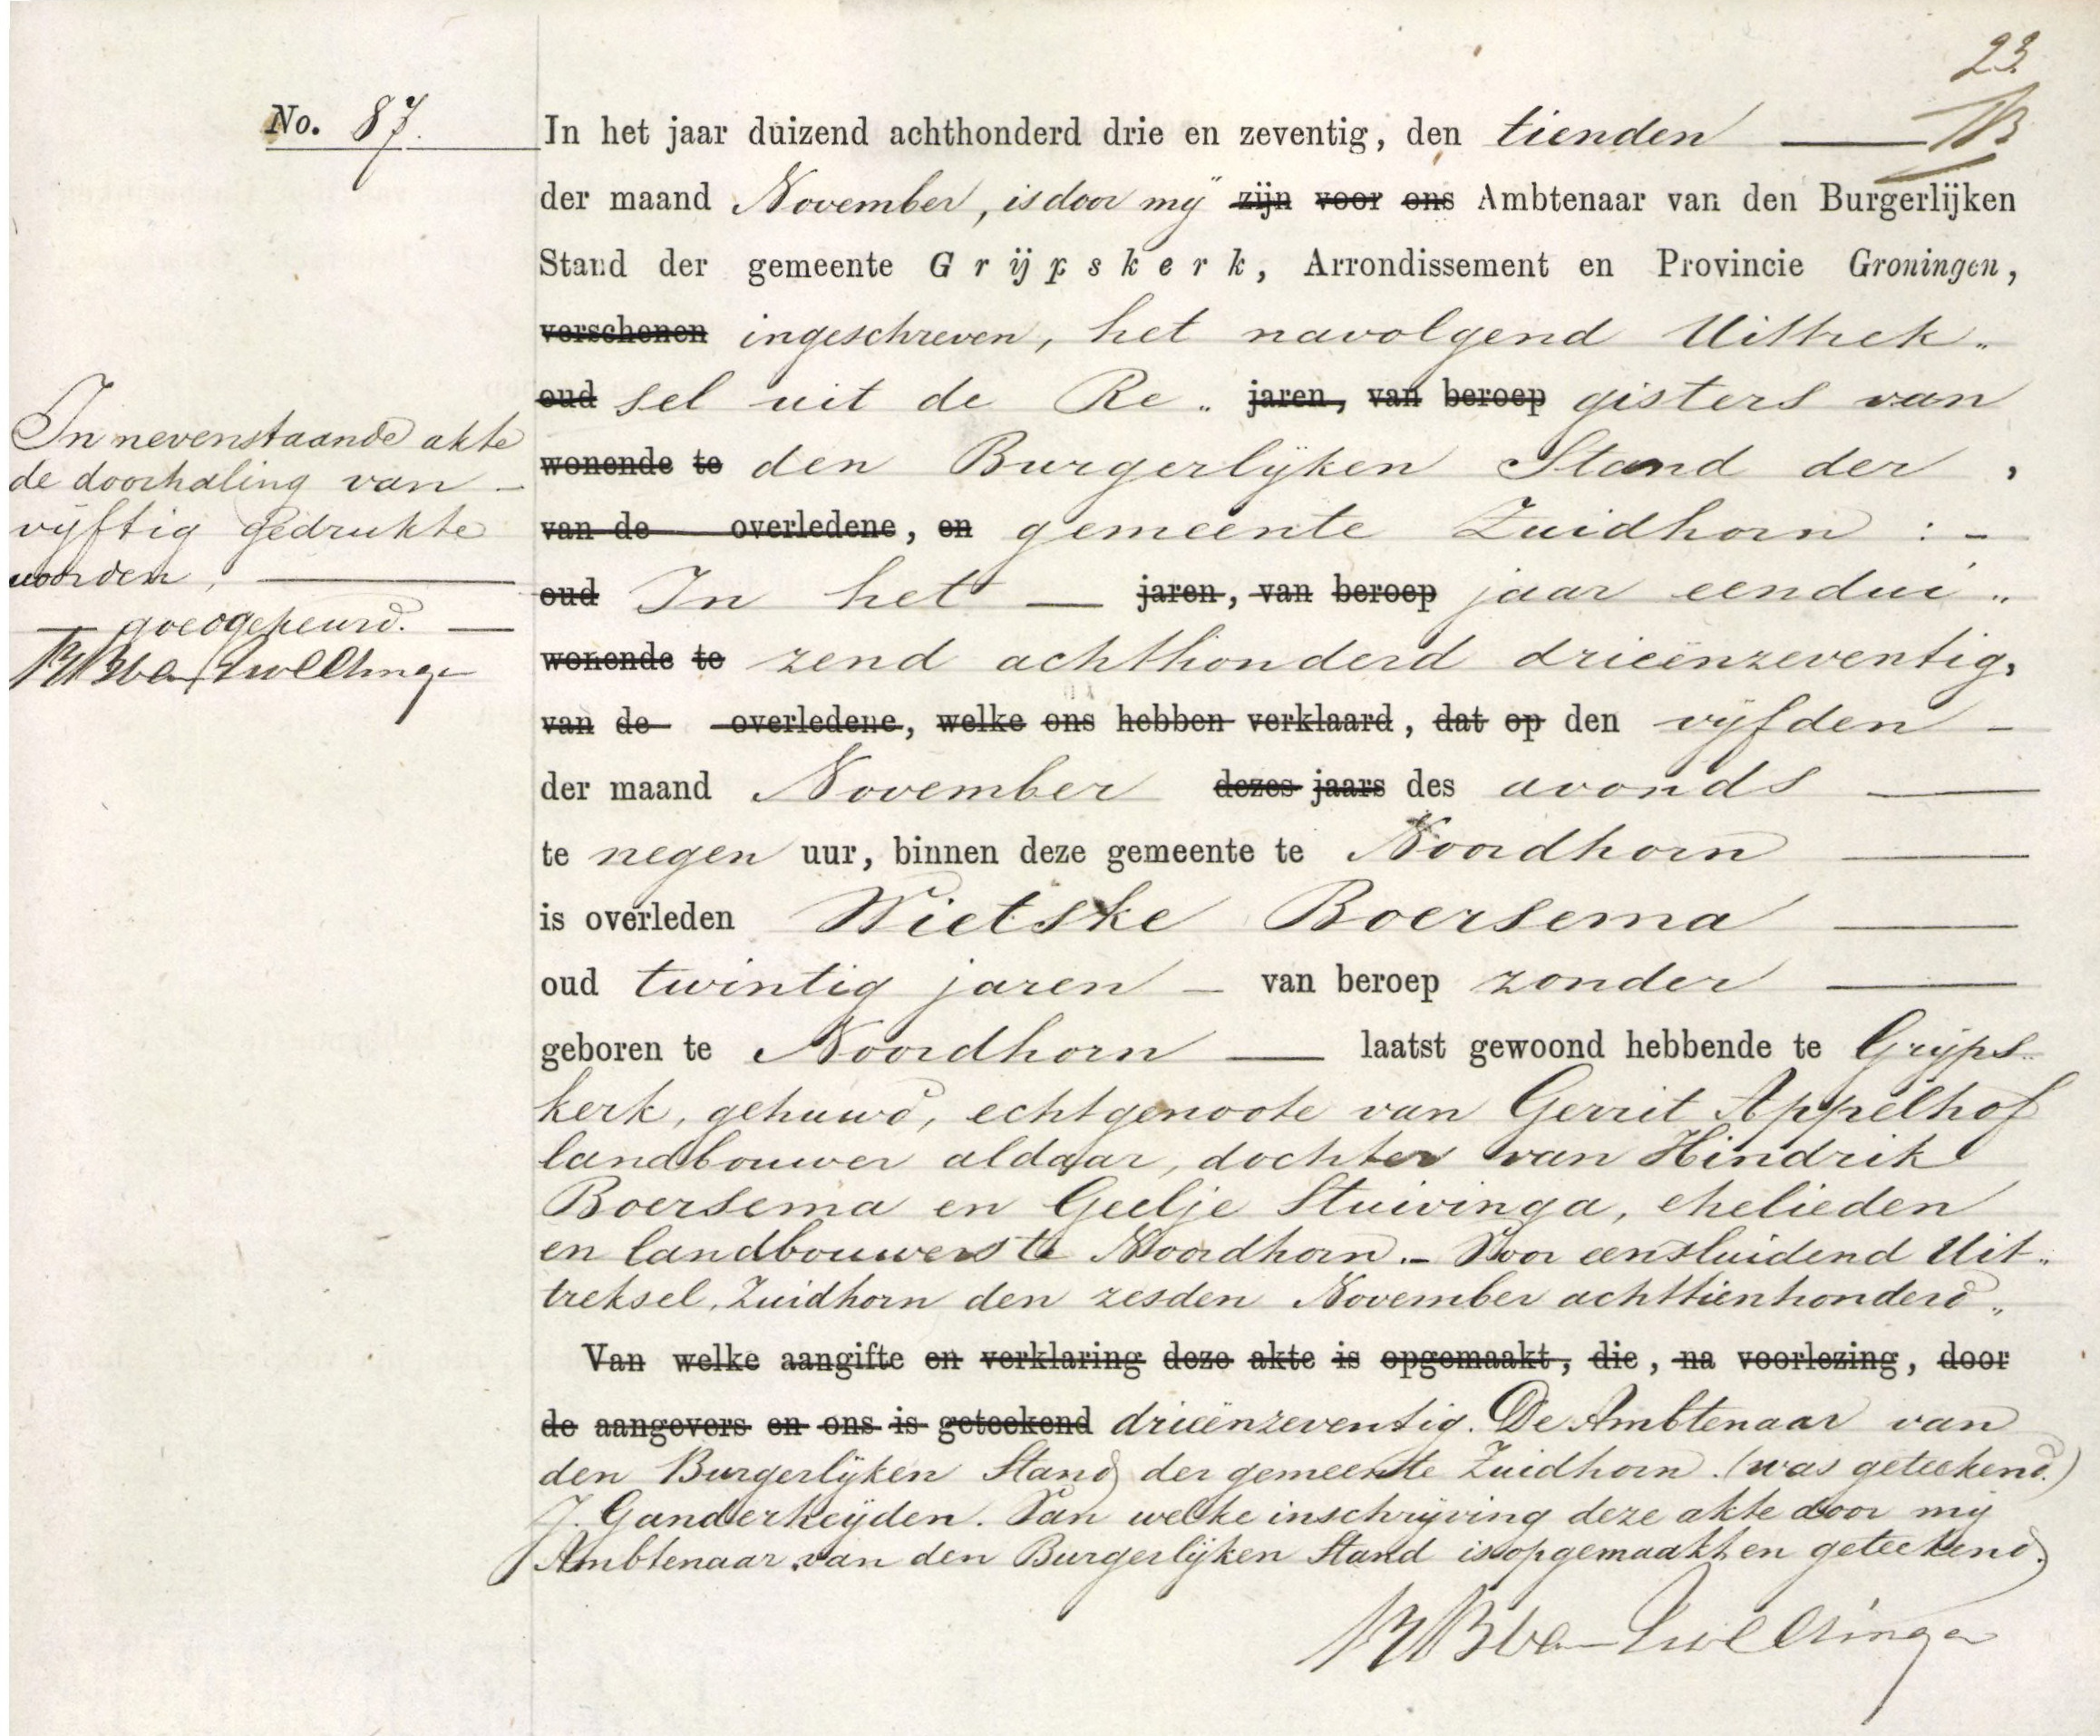 23
No. 87.
In het jaar duizend achthonderd drie en zeventig, den tienden
der maand November, is door mij zijn voor ons Ambtenaar van den Burgerlijken
Stand der gemeente Grijpskerk, Arrondissement en Provincie Groningen,
verschenen ingeschreven, het navolgend Uittrek„
oud sel uit de Re„ jaren, van beroep gisters van
wonende te den Burgerlijken Stand der ,
van de overledene, en gemeente Zuidhorn : -
oud In het — jaren, van beroep jaar eendui„
wonende te zend achthonderd drieënzeventig,
van de overledene, welke ons hebben verklaard, dat op den vijfden -
der maand November dezes jaars des avonds —
te negen uur, binnen deze gemeente te Noordhorn —
is overleden Wietske Boersema —
oud twintig jaren - van beroep zonder —
geboren te Noordhorn — laatst gewoond hebbende te Grijps„
kerk, gehuwd, echtgenoote van Gerrit Appelhof
landbouwer aldaar, dochter van Hindrik
Boersema en Geelje Stuivinga, ehelieden
en landbouwers te Noordhorn.- Voor eensluidend Uit„
treksel, Zuidhorn den zesden November achttienhonderd„
Van welke aangifte en verklaring deze akte is opgemaakt, die, na voorlezing, door
de aangevers en ons is geteekend drieënzeventig. De Ambtenaar van
den Burgerlijken Stand der gemeente Zuidhorn. (was geteekend.)
J. Ganderheijden. Van welke inschrijving deze akte door mij
Ambtenaar van den Burgerlijken Stand is opgemaakt en geteekend.
In nevenstaande akte
de doorhaling van -
vijftig gedrukte
woorden, —
— goedgekeurd. —